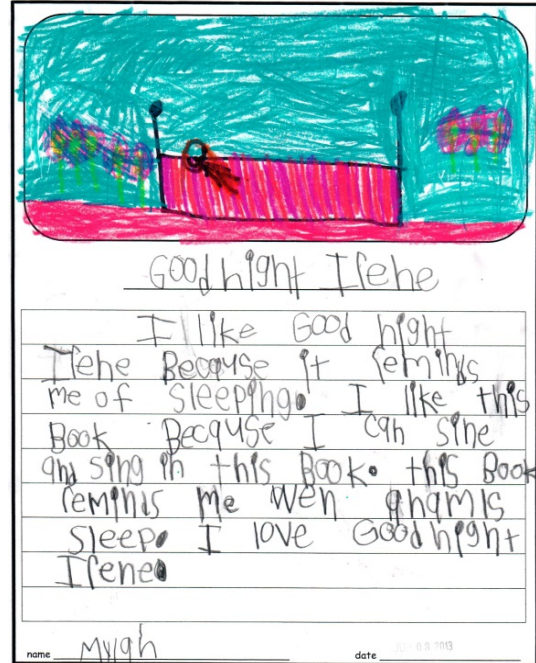 Good night Irene
I like Good night
Irene Because it reminds
me of sleeping. I like this
Book Because I can sine
and sing in this Book. this Book
reminds me wen anamls
sleep. I love Good night
Irene.
name Mylah
date 2013